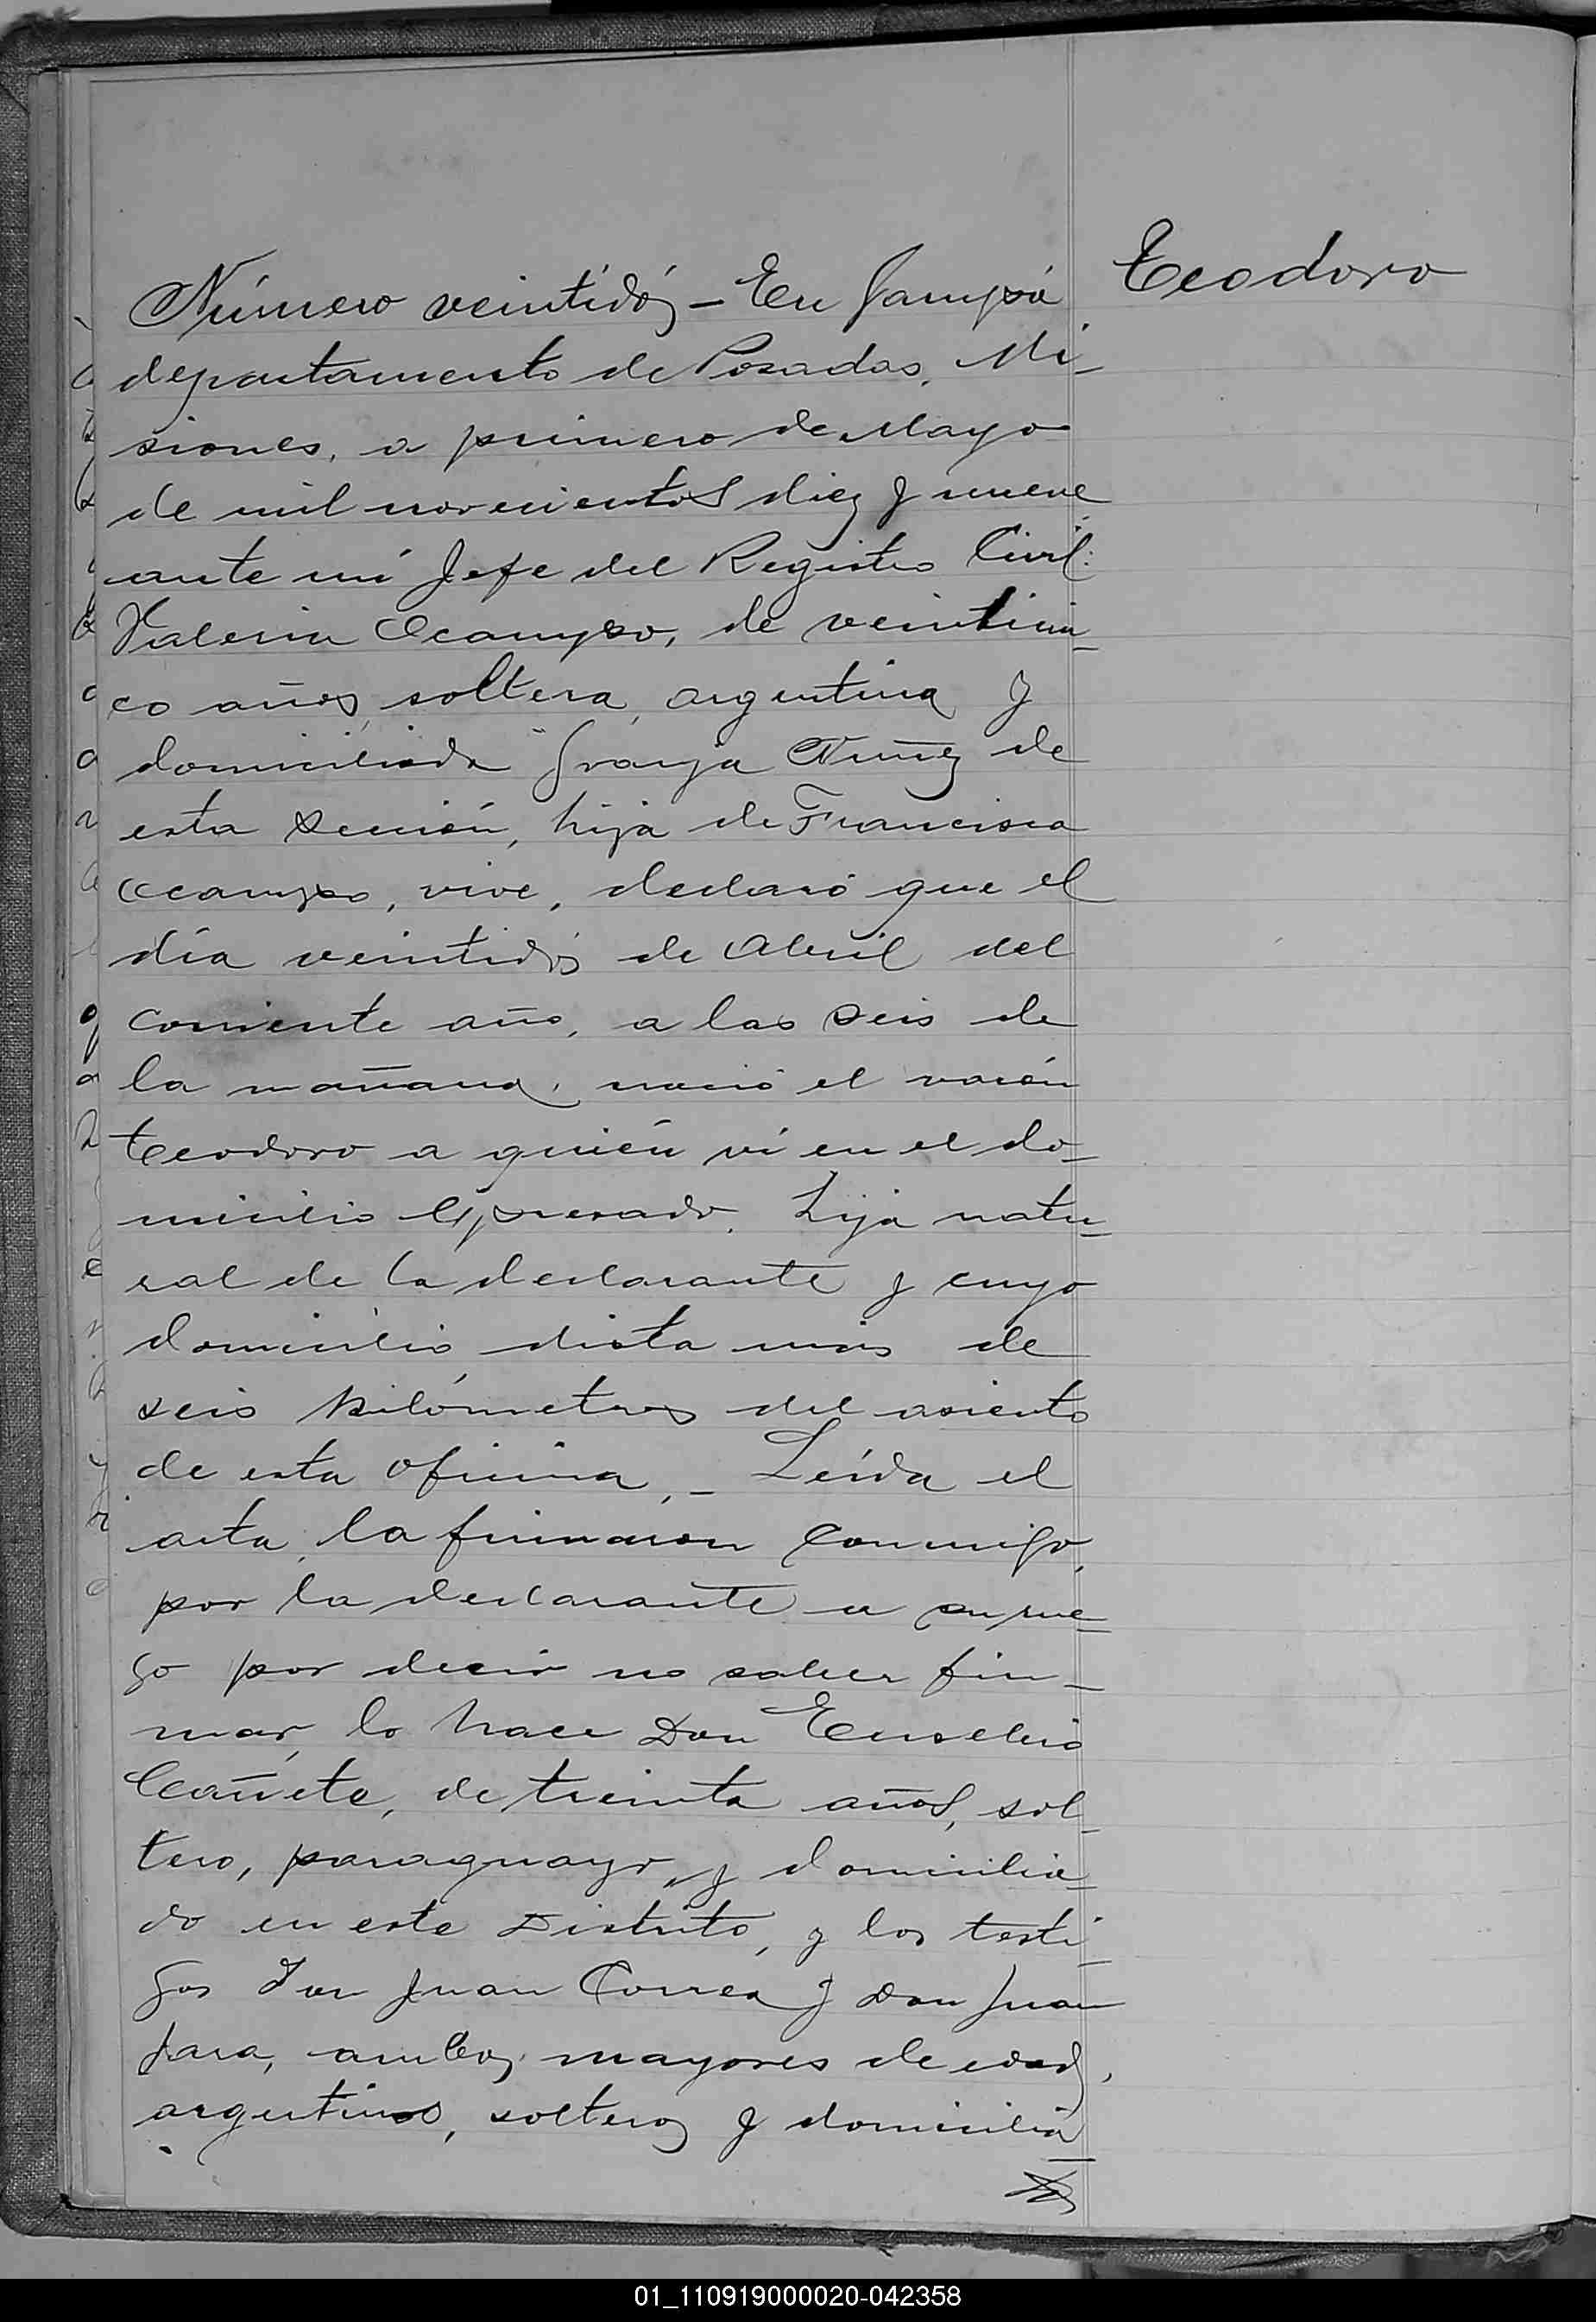 Teodoro
Número veintidós – En Garupá
departamento de Posadas, Mi-
siones, a primero de Mayo
de mil novecientos diez y nueve
ante mí Jefe del Registro Civil:
Valeria Ocampo, de veinticin-
co años, soltera, argentina y
domiciliada Granja Nuñez de
esta Sección, hija de Francisca
Ocampo, vive, declaró que el
día veintidós de Abril del
corriente año, a las seis de
la mañana, nació el varón
Teodoro a quién ví en el do-
micilio expresado, hijo natu-
ral de la declarante y cuyo
domicilio dista más de
seis kilómetros del asiento
de esta oficina,– Leída el
acta, la firmaron conmigo,
por la declarante a su rue-
go por decir no saber fir-
mar, lo hace Don Eusebio
Cañete, de treinta años, sol-
tero, paraguayo, y domicilia-
do en este Distrito, y los testi-
gos Don Juan Correa y Don Juan
Jara, ambos mayores de edad,
argentinos, solteros y domicilia-
01_110919000020-042358